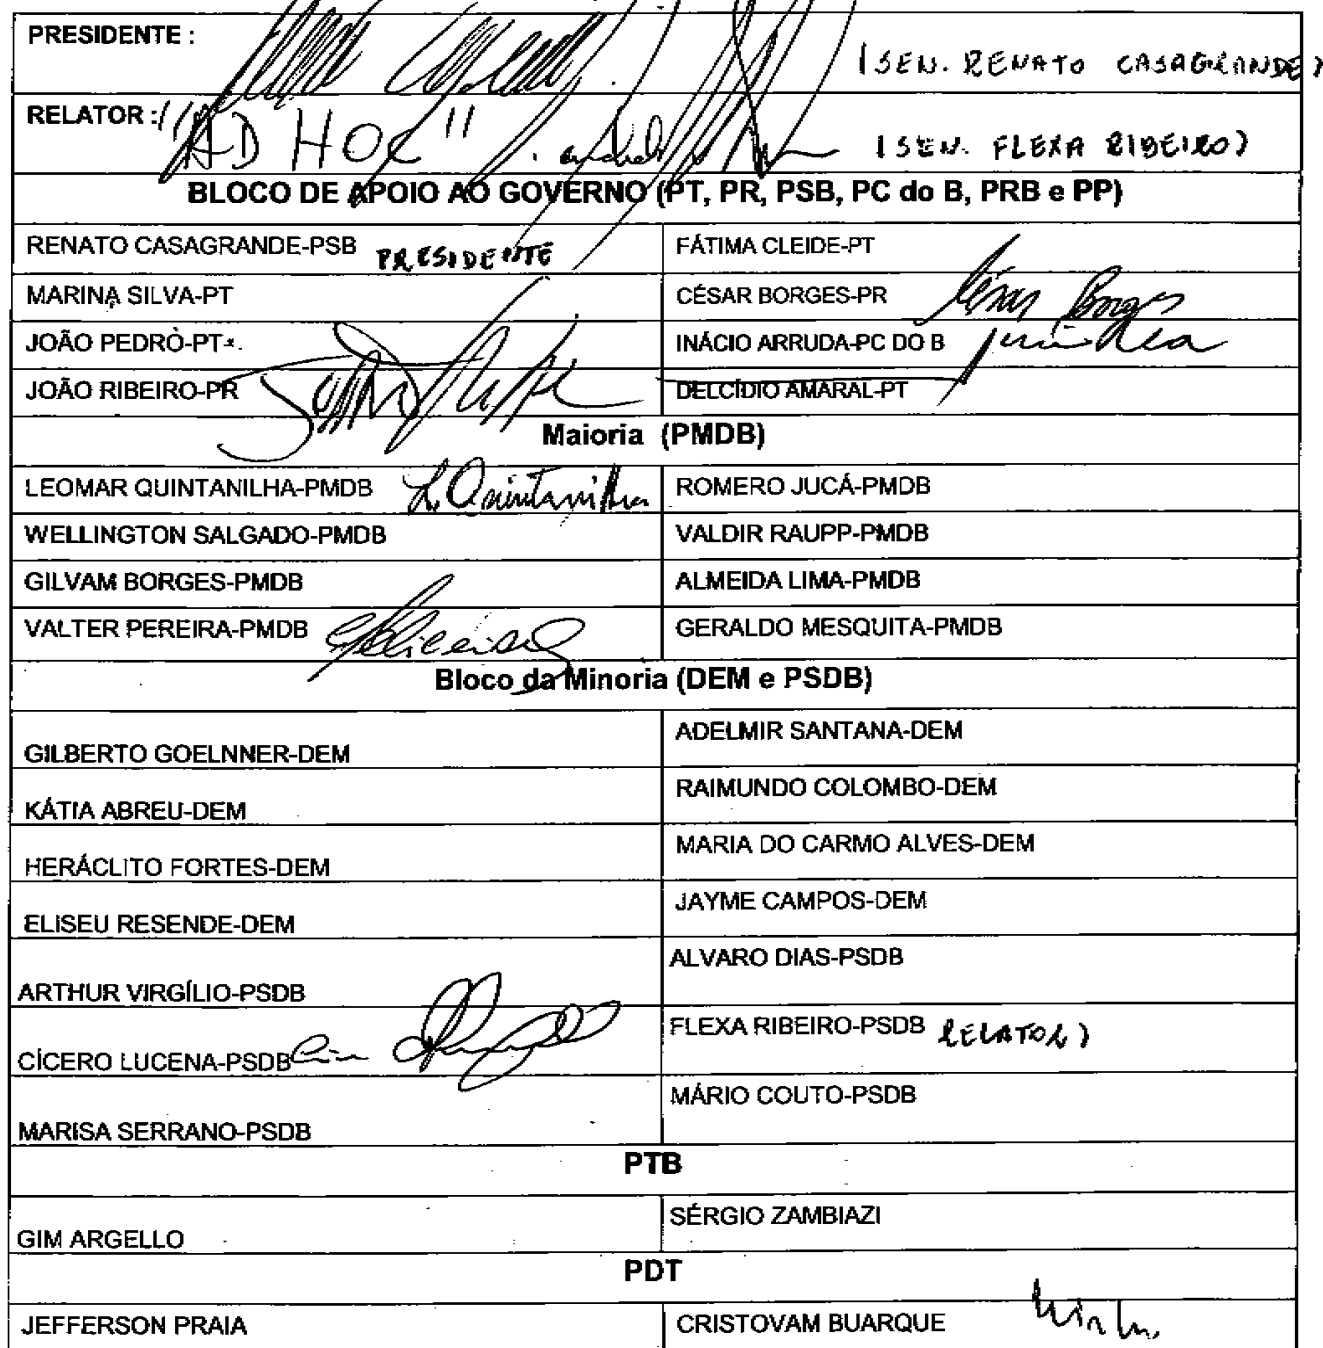 PRESIDENTE :
(SEN. RENATO CASAGRANDE)
RELATOR :
"AD HOC"
(SEN. FLEXA RIBEIRO)
BLOCO DE APOIO AO GOVERNO (PT, PR, PSB, PC do B, PRB e PP)
RENATO CASAGRANDE-PSB PRESIDENTE
FÁTIMA CLEIDE-PT
MARINA SILVA-PT
CÉSAR BORGES-PR César Borges
JOÃO PEDRO-PT
INÁCIO ARRUDA-PC DO B
JOÃO RIBEIRO-PR
DELCÍDIO AMARAL-PT
Maioria (PMDB)
LEOMAR QUINTANILHA-PMDB L Quintanilha
ROMERO JUCÁ-PMDB
WELLINGTON SALGADO-PMDB
VALDIR RAUPP-PMDB
GILVAM BORGES-PMDB
ALMEIDA LIMA-PMDB
VALTER PEREIRA-PMDB
GERALDO MESQUITA-PMDB
Bloco da Minoria (DEM e PSDB)
GILBERTO GOELNNER-DEM
ADELMIR SANTANA-DEM
KÁTIA ABREU-DEM
RAIMUNDO COLOMBO-DEM
HERÁCLITO FORTES-DEM
MARIA DO CARMO ALVES-DEM
ELISEU RESENDE-DEM
JAYME CAMPOS-DEM
ARTHUR VIRGÍLIO-PSDB
ALVARO DIAS-PSDB
CÍCERO LUCENA-PSDB
FLEXA RIBEIRO-PSDB RELATOR)
MARISA SERRANO-PSDB
MÁRIO COUTO-PSDB
PTB
GIM ARGELLO
SÉRGIO ZAMBIAZI
PDT
JEFFERSON PRAIA
CRISTOVAM BUARQUE